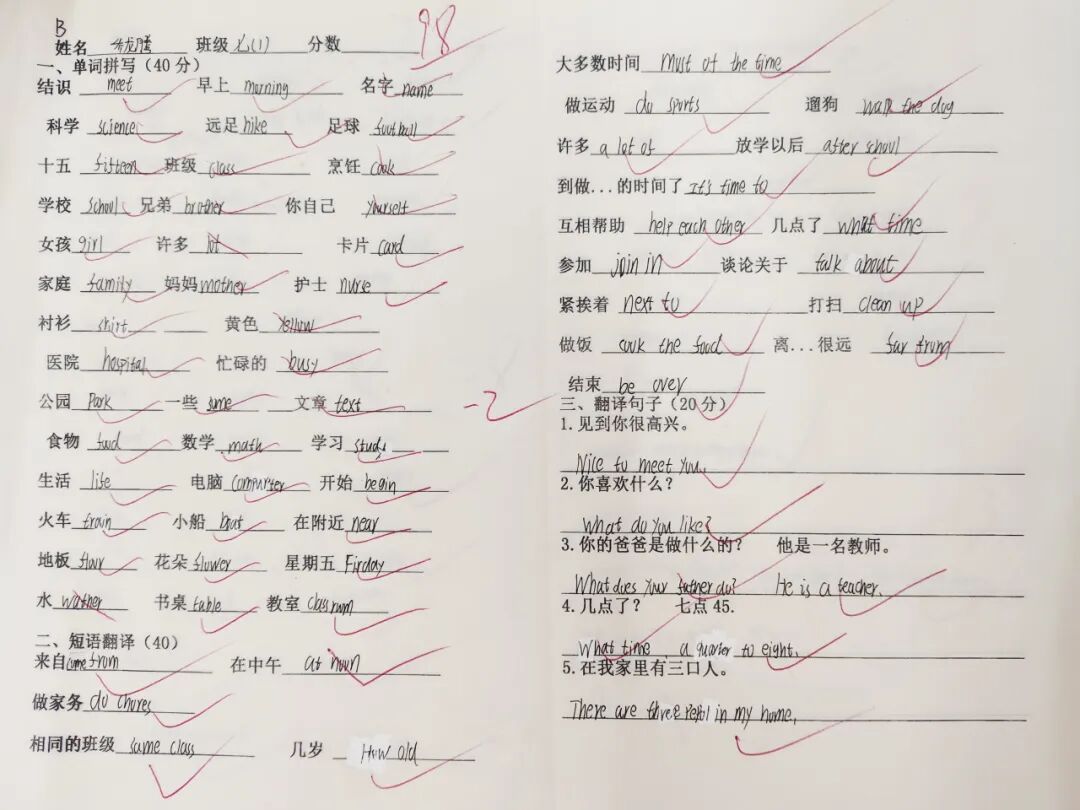 B
姓名 班级 七(1) 分数 98
一、单词拼写(40分)
结识 meet 早上 morning 名字 name
科学 science 远足 hike 足球 football
十五 fifteen 班级 class 烹饪 cook
学校 school 兄弟 brother 你自己 yourself
女孩 girl 许多 lot 卡片 card
家庭 family 妈妈 mother 护士 nurse
衬衫 shirt 黄色 yellow
医院 hospital 忙碌的 busy
公园 Park 一些 some 文章 text
-2
食物 food 数学 math 学习 study
生活 life 电脑 computer 开始 begin
火车 train 小船 boat 在附近 near
地板 floor 花朵 flower 星期五 Firday
水 wather 书桌 table 教室 classroom
二、短语翻译(40)
来自 come from 在中午 at noon
做家务 do chores
相同的班级 same class 几岁 How old
大多数时间 Most of the time
做运动 do sports 遛狗 walk the dog
许多 a lot of 放学以后 after school
到做...的时间了 It's time to
互相帮助 help each other 几点了 what time
参加 join in 谈论关于 talk about
紧挨着 next to 打扫 clean up
做饭 cook the food 离...很远 far from
结束 be over
三、翻译句子(20分)
1.见到你很高兴。
Nice to meet you.
2.你喜欢什么?
What do you like?
3.你的爸爸是做什么的? 他是一名教师。
What does your father do? He is a teacher.
4.几点了? 七点45.
What time. a quarter to eight.
5.在我家里有三口人。
There are three Pepol in my home.